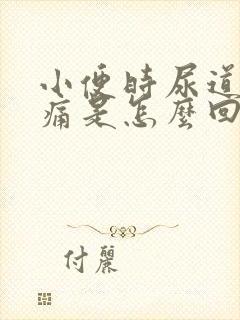 小便時尿道
痛是怎麼回
付麗